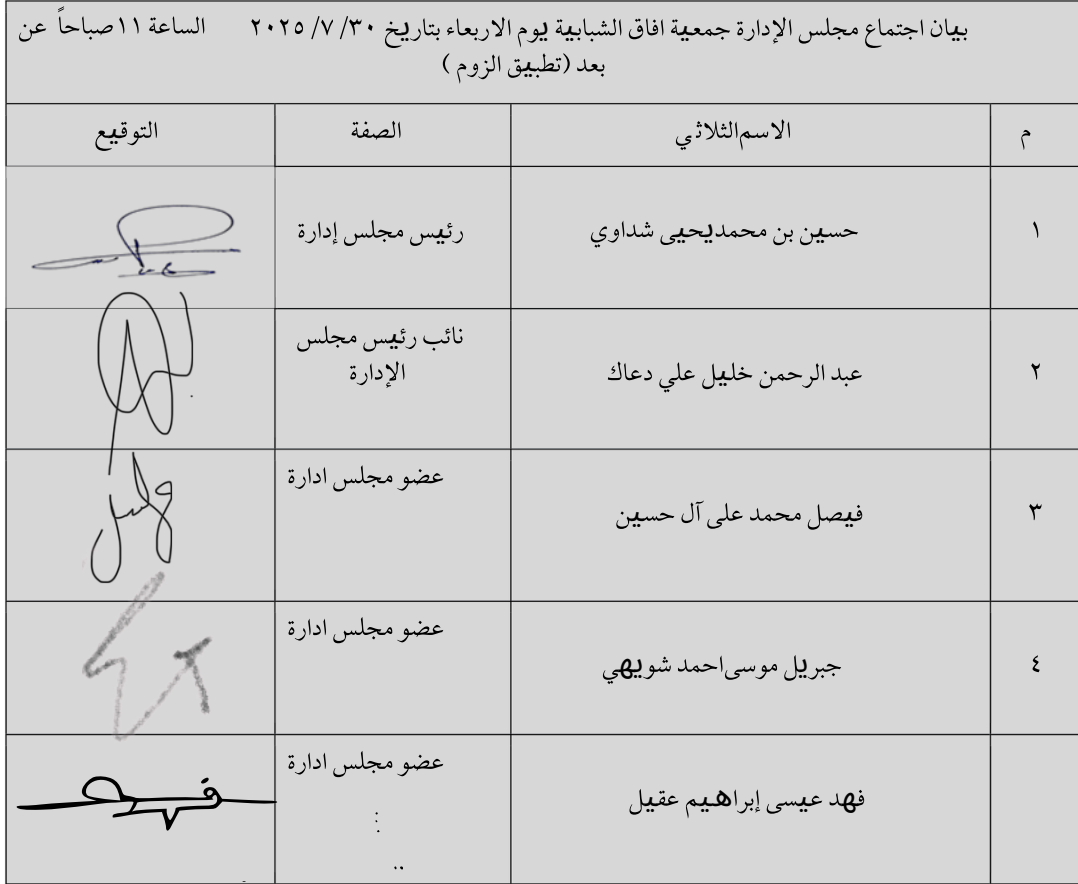 بيان اجتماع مجلس الإدارة جمعية افاق الشبابية يوم الاربعاء بتاريخ ٣٠/ ٧/ ٢٠٢٥ الساعة ١١صباحاً عن
بعد (تطبيق الزوم )
م الاسم الثلاثي الصفة التوقيع
١ حسين بن محمد يحيى شداوي رئيس مجلس إدارة
٢ عبد الرحمن خليل علي دعاك نائب رئيس مجلس
الإدارة
٣ فيصل محمد على آل حسين عضو مجلس ادارة
٤ جبريل موسى احمد شويهي عضو مجلس ادارة
فهد عيسى إبراهيم عقيل عضو مجلس ادارة